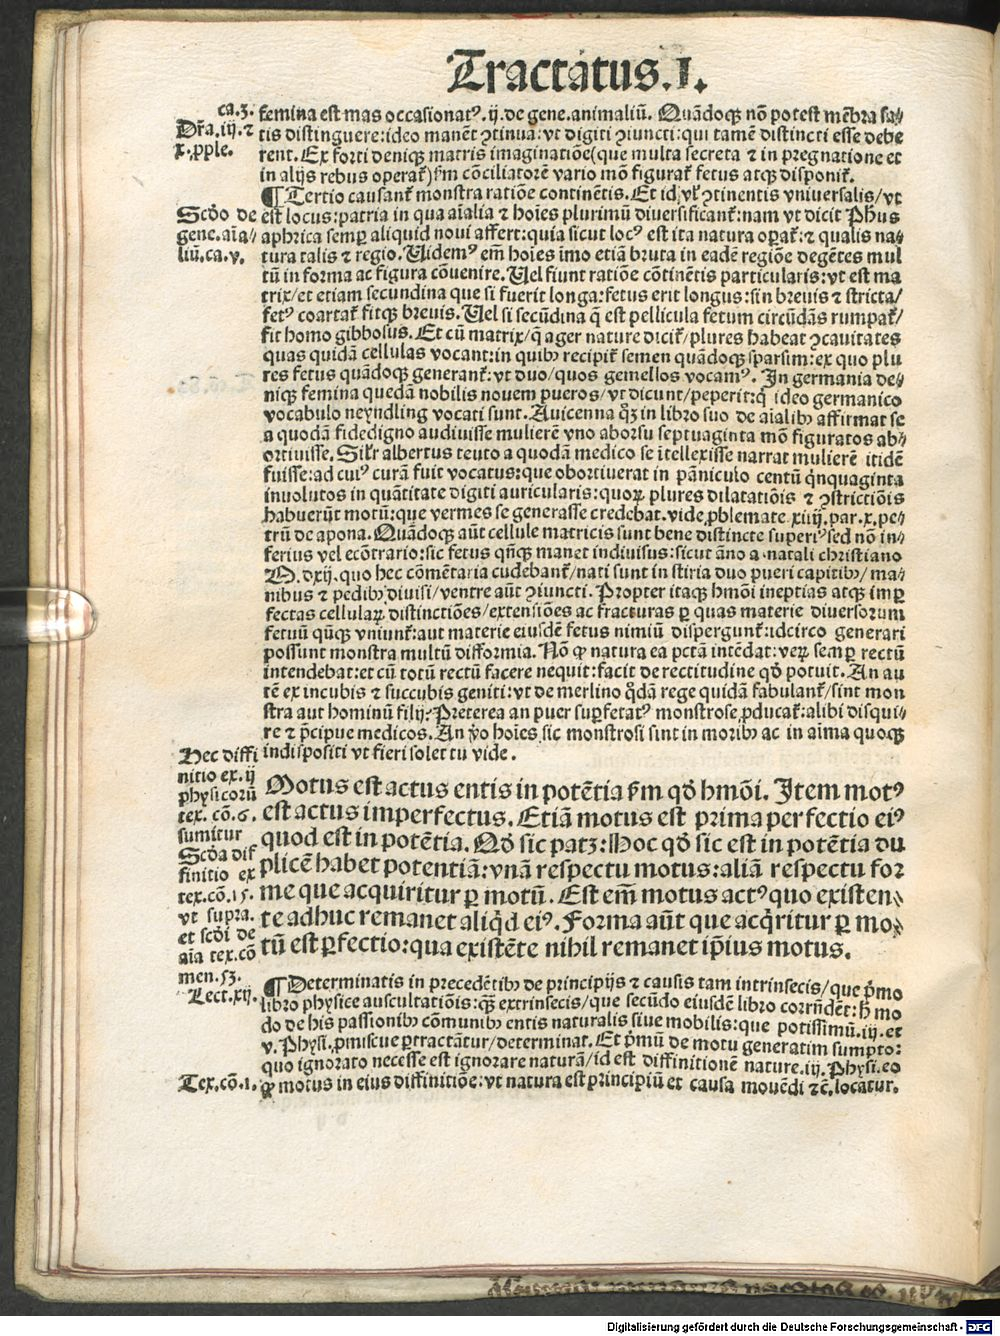 Tractatus.I.
ca.3.
Dr̃a.iij.⁊
x.pple.
femina est mas occasionatꝰ.ij.de gene.animaliū. Quãdoqꝫ nõ potest mẽbra sa⸗
tis distinguere:ideo manẽt ꝯtinua:vt digiti ꝯiuncti:qui tamẽ distincti esse debe
rent. Ex forti deniqꝫ matris imaginatiõe(que multa secreta ⁊ in pregnatione et
in alijs rebus operat̃)s̃m cõciliatorẽ vario mõ figurat̃ fetus atqꝫ disponit̃.
¶ Tertio causant̃ monstra ratiõe continẽtis. Et id vl̃ ꝯtinentis vniuersalis/vt
Scd̃o de
gene.aĩa⸗
liũ.ca.v.
est locus:patria in qua aĩalia ⁊ hoĩes plurimũ diuersificant̃:nam vt dicit Phus
aphrica semꝑ aliquid noui affert:quia sicut locꝰ est ita natura oꝑat̃:⁊ qualis na⸗
tura talis ⁊ regio. Uidemꝰ em̃ hoĩes imo etiã bruta in eadẽ regiõe degẽtes mul
tũ in forma ac figura cõuenire. Uel fiunt ratiõe cõtinẽtis particularis:vt est ma
trix/et etiam secundina que si fuerit longa:fetus erit longus:sin breuis ⁊ stricta/
fetꝰ coartat̃ fitqꝫ breuis. Uel si secũdina q̃ est pellicula fetum circũdãs rumpat̃/
fit homo gibbosus. Et cũ matrix/q̃ ager nature dicit̃/plures habeat ꝯcauitates
quas quidã cellulas vocant:in quibꝫ recipit̃ semen quãdoqꝫ sparsim:ex quo plu
res fetus quãdoqꝫ generant̃:vt duo/quos gemellos vocamꝰ. In germania de⸗
niqꝫ femina quedã nobilis nouem pueros/vt dicunt/peperit:q̃ ideo germanico
vocabulo neyndling vocati sunt. Auicenna qꝫ in libro suo de aĩalibꝫ affirmat se
a quodã fidedigno audiuisse mulierẽ vno aborsu septuaginta mõ figuratos ab⸗
ortiuisse. Sil̃r albertus teuto a quodã medico se ĩtellexisse narrat mulierẽ itidẽ
fuisse:ad cuiꝰ curã fuit vocatus:que obortiuerat in pãniculo centũ q̃nquaginta
inuolutos in quãtitate digiti auricularis:quoꝝ plures dilatatiõis ⁊ ꝯstrictiõis
habuerũt motũ:que vermes se generasse credebat.vide ꝓblemate xiiij.par.x.pe⸗
trũ de apona. Quãdoqꝫ aũt cellule matricis sunt bene distincte superiꝰ sed nõ in⸗
ferius vel ecõtrario:sic fetus qñqꝫ manet indiuisus:sicut ãno a natali christiano
M.dxij.quo hec cõmẽtaria cudebant̃/nati sunt in stiria duo pueri capitibꝫ/ma⸗
nibus ⁊ pedibꝫ diuisi/ventre aũt ꝯiuncti. Propter itaqꝫ hmõi ineptias atqꝫ imꝑ
fectas cellulaꝝ distinctiões/extensiões ac fracturas ꝑ quas materie diuersorum
fetuũ qñqꝫ vniunt̃:aut materie eiusdẽ fetus nimiũ dispergunt̃:idcirco generari
possunt monstra multũ difformia. Nõ ꝙ natura ea pctã intẽdat:veꝝ semꝑ rectũ
intendebat:et cũ totũ rectũ facere nequit:facit de rectitudine qd̃ potuit. An au
tẽ ex incubis ⁊ succubis geniti:vt de merlino q̃dã rege quidã fabulant̃/sint mon
stra aut hominũ filij: Preterea an puer suꝑfetatꝰ monstrose ꝓducat̃:alibi disqui⸗
re ⁊ p̃cipue medicos. An ṽo hoĩes sic monstrosi sint in moribꝫ ac in aĩma quoqꝫ
indispositi vt fieri solet tu vide.
Hec diffi
nitio ex.ij
physicorũ
tex.cõ.6.
sumitur
Scd̃a dif
finitio ex
tex.cõ.15.
vt supra.
et scd̃i de
aĩa tex.cõ
men.53.
Motus est actus entis in potẽtia s̃m qd̃ hmõi. Item motꝰ
est actus imperfectus. Etiã motus est prima perfectio eiꝰ
quod est in potẽtia. Qd̃ sic patꝫ: Hoc qd̃ sic est in potẽtia du
plicẽ habet potentiã:vnã respectu motus:aliã respectu for
me que acquiritur ꝑ motũ. Est em̃ motus actꝰ quo existen⸗
te adhuc remanet aliq̃d eiꝰ. Forma aũt que acq̃ritur ꝑ mo⸗
tũ est ꝑfectio:qua existẽte nihil remanet ip̃ius motus.
Lect.xij.
¶ Determinatis in precedẽtibꝫ de principijs ⁊ causis tam intrinsecis/que p̃mo
libro physice auscultatiõis:qꝫ̃ extrinsecis/que secũdo eiusdẽ libro corrñdẽt:h̃ mo
do de his passionibꝫ cõmunibꝫ entis naturalis siue mobilis:que potissimũ.iij.et
v.Physi.ꝓmiscue ꝑtractãtur/determinat. Et p̃mũ de motu generatim sumpto:
quo ignorato necesse est ignorare naturã/id est diffinitionẽ nature.iij.Physi.eo
Tex.cõ.1.
ꝙ motus in eius diffinitiõe:vt natura est principiũ et causa mouẽdi ⁊c̃.locatur.
Digitalisierung gefördert durch die Deutsche Forschungsgemeinschaft - DFG